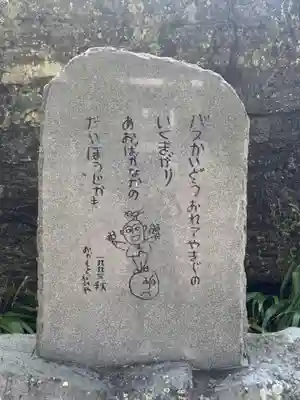 バスかいどうおれてやまじの
いくまがり
あおばがなかの
だいほうじかも